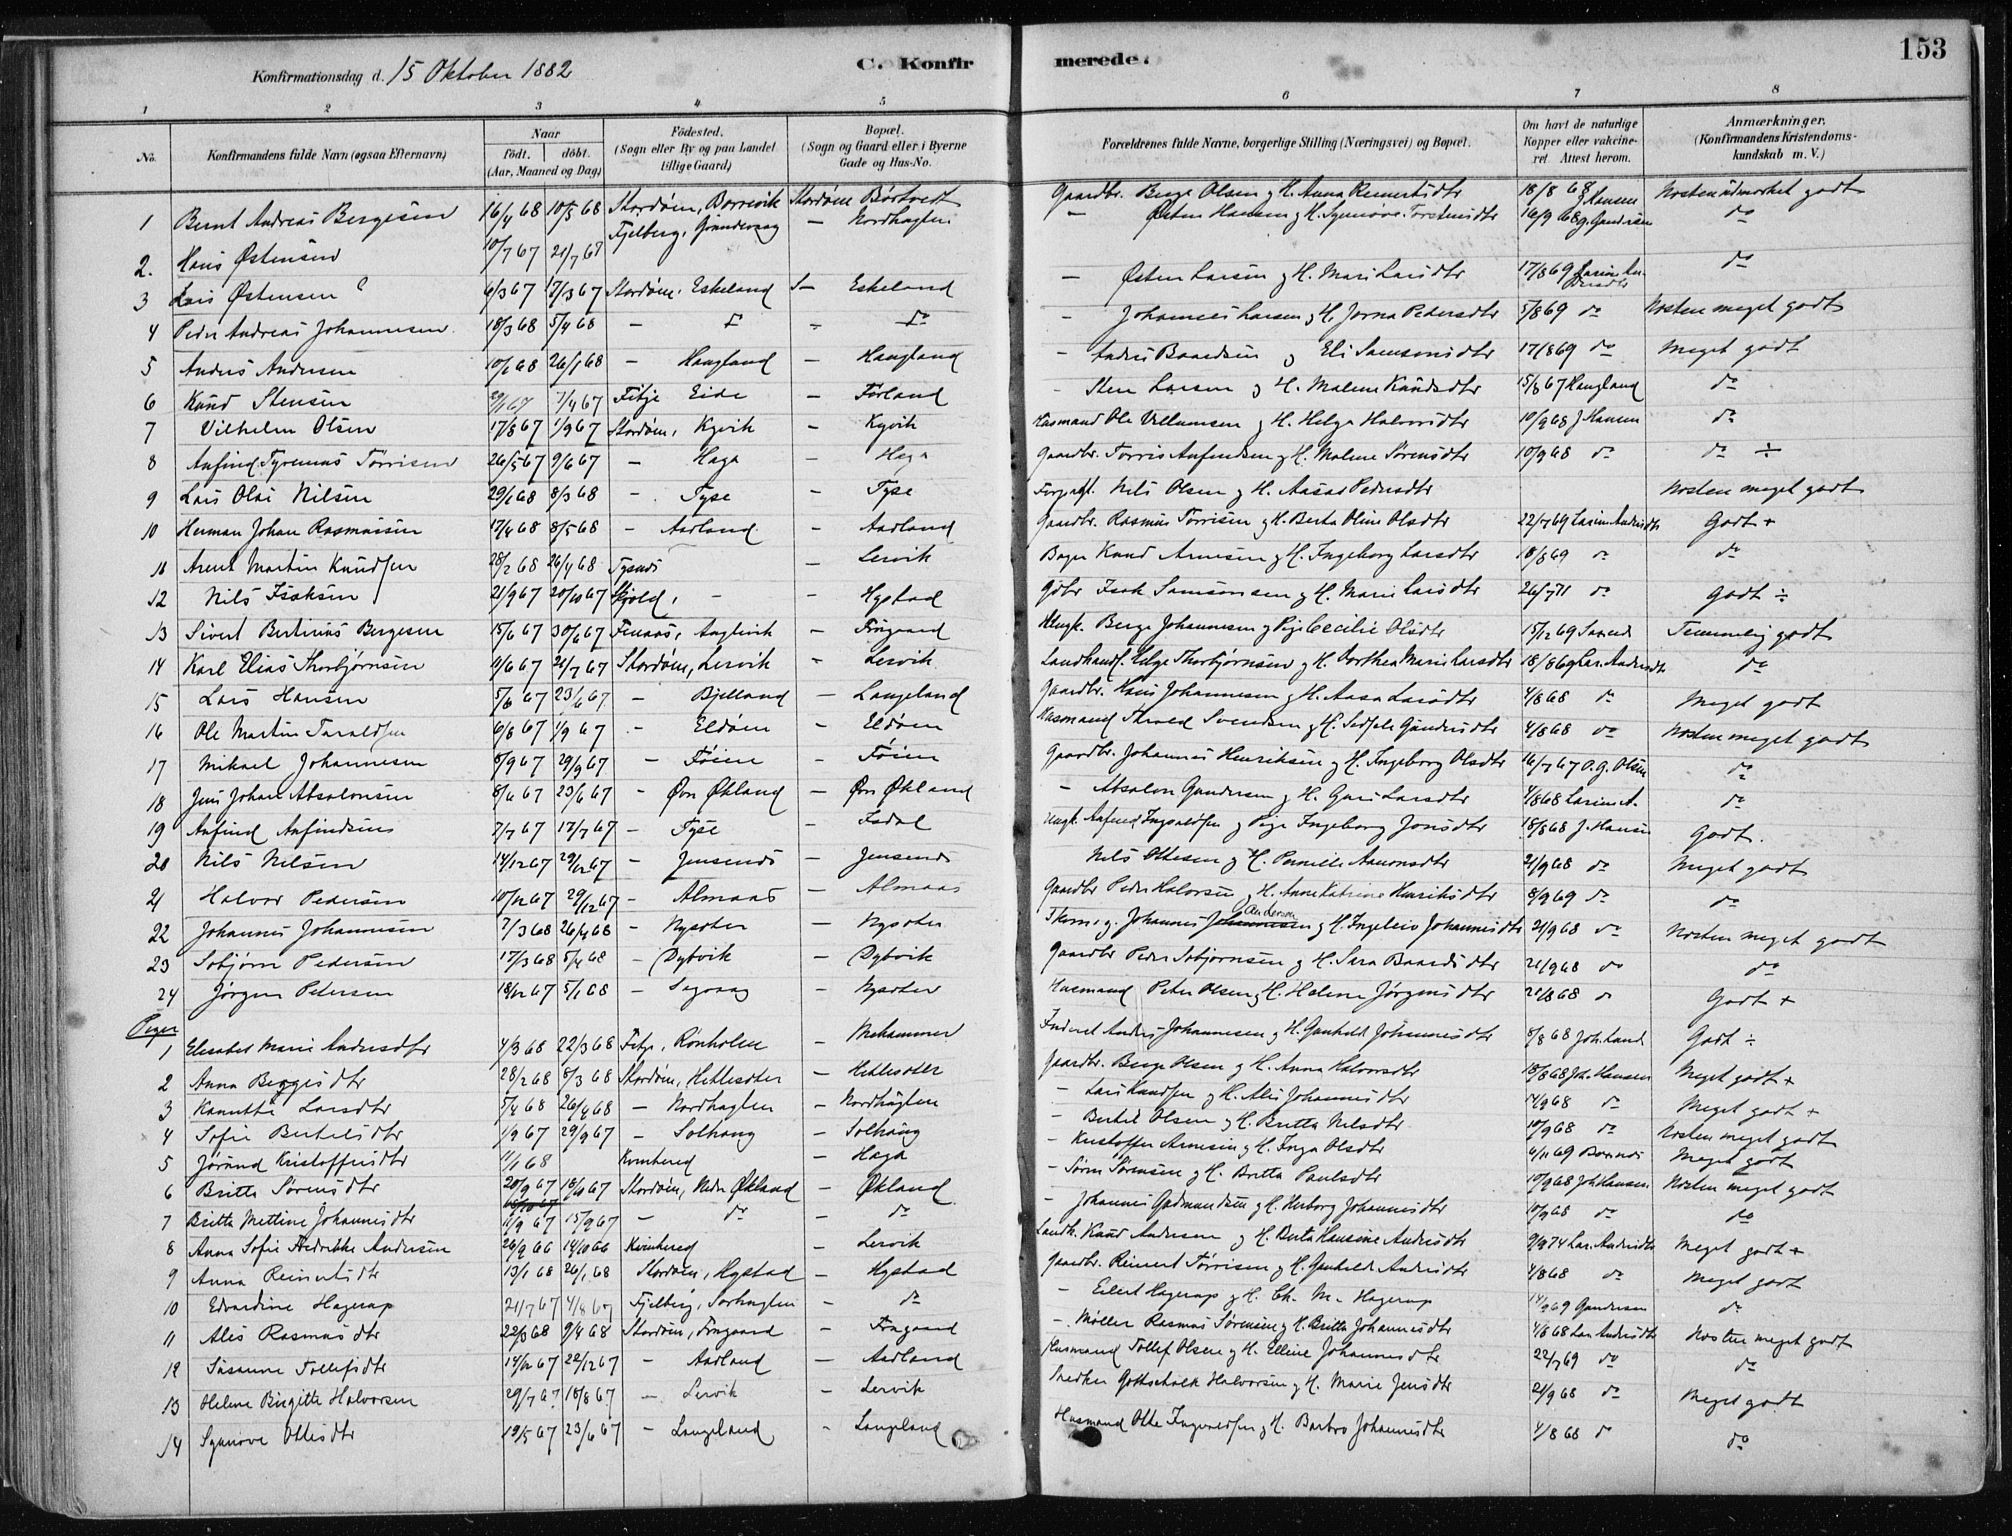 153
Konfirmationsdag d. 15 Oktober 1882
C. Konfirmerede.
1 2 3 4 5 6 7 8
No.
Konfirmandens fulde Navn (ogsaa Efternavn)
Naar
født. | døbt.
(Aar, Maaned og Dag)
Fødested.
(Sogn eller By og paa Landet tillige Gaard)
Bopæl.
(Sogn og Gaard eller i Byerne Gade og Hus-No.
Forældrenes fulde Navne, borgerlige Stilling (Næringsvei) og Bopæl.
Om havt de naturlige Kopper eller vakcineret. Attest herom.
Anmærkninger.
(Konfirmandens Kristendomskundskab m. V.)
1 Bernt Andreas Bergesen 16/4 68 10/5 68 Stordøen, Borrevik Stordøen Børtvedt Gaardbr. Berge Olsen og H. Anna Reinertsdtr 18/8 68 J Hansen Næsten udmærket godt
2. Hans Østensen 10/7 67 21/7 67 Fjelberg, Grindevaag — Nordhuglen — Østen Hansen og H. Synnøve Torstensdtr 16/9 68 g. Gundersen do
3 Lars Østensen 6/3 67 17/3 67 Stordøen, Eskeland S— Eskeland — Østen Larsen og H. Mari Larsdtr 17/8 69 Larine Andersdtr do
4 Peder Andreas Johannesen 18/3 68 5/4 68 — do — do — Johannes Larsen og H. Jorna Pedersdtr 5/8 69 do Næsten meget godt
5 Anders Andersen 10/1 68 26/1 68 — Haugland — Haugland — Anders Baardsen og Eli Samsonsdtr 17/8 69 do Meget godt
6 Knud Stensen 29/1 67 7/4 67 Fitje Eide — Førland — Sten Larsen og H. Malene Knudsdtr 15/8 67 Haugland do
7 Vilhelm Olsen 17/8 67 1/9 67 Stordøen, Kyvik — Kyvik Husmand Ole Villumsen og H. Helga Halvorsdtr 10/9 68 J Hansen do
8 Anfind Tyrennus Tørrisen 26/5 67 9/6 67 — Haga — Haga Gaardbr. Tørris Anfindsen og H. Malene Sørensdtr 10/9 68 do do ÷
9 Lars Olai Nilsen 29/1 68 8/3 68 — Tyse — Tyse Nils Olsen og H. Aasa Pedersdtr Næsten meget godt
10 Herman Johan Rasmussen 17/4 68 8/5 68 — Aadland — Aadland Gaardbr. Rasmus Tørrisen og H. Berta Oline Olsdtr 22/7 69 Larine Andersdtr Godt +
11 Arent Martin Knudsen 28/2 68 26/4 68 Tysnæs — Lervik Bager Knud Arnesen og H. Ingeborg Larsdtr 18/8 69 do do
12 Nils Isaksen 21/9 67 20/10 67 Skjold, — — Hystad Gdbr Isak Samsonsen og H. Mari Larsdtr 26/7 71 do Godt ÷
13 Sivert Bertinus Bergesen 15/6 67 30/6 67 Finaas, Anglevik — Frugaard Ungk. Berge Johannesen og Pige Cecilie Olsdtr 15/12 69 Temmelig godt
14 Karl Elias Thorbjørnsen 11/6 67 21/7 67 Stordøen, Lervik — Lervik Landhandl. Helge Thorbjørnsen og H. Dorthea Marie Larsdtr 18/8 69 Lar. Andersdtr do
15 Lars Hansen 5/6 67 23/6 67 — Bjelland — Langeland Gaardbr. Hans Johannesen og H. Aasa Larsdtr 4/8 68 do Meget godt
16 Ole Martin Taraldsen 6/8 67 1/9 67 — Eldøen — Eldøen Husmand Tarald Svendsen og H. Gundersdtr 4/8 68 do Næsten meget godt
17 Mikael Johannesen 8/9 67 29/9 67 — Føien — Føien Gaardbr. Johannes Henriksen og H. Ingeborg Olsdtr 16/7 67 O. G. Olsen do
18 Jens Johan Absalonsen 8/6 67 23/6 67 — Øvr Økland — Øvr Økland — Absalon Gundersen og H. Guri Larsdtr 4/8 68 Larine A. do
19 Anfind Anfindsen 2/7 67 17/7 67 — Tyse — Isdal Ungk. Anfind Ingvaldsen og Pige Ingeborg Jonsdtr 18/8 68 J. Hansen Godt.
20 Nils Nilsen 14/12 67 29/12 67 — Jensenæs — Jensenæs Nils Ottesen og H. Pernille Aamonsdtr 21/9 68 do Meget godt
21 Halvor Pedersen 10/12 67 29/12 67 — Almaas — Almaas Gaardbr Peder Halvorsen og H. Anne Katrine Henriksdtr 8/9 69 do do
22 Johannes Johannesen 7/3 68 26/4 68 — Nysæter — Nysæter Johannes Andersen og H. Ingeleiv Johannesdtr 21/9 68 do Næsten meget godt
23 Sæbjørn Pedersen 17/3 68 5/4 68 — Dybvik — Dybvik Gaardbr Peder Sæbjørnsen og H. Sara Baardsdtr 21/9 68 do do
24 Jørgen Petersen 18/12 67 5/1 68 — Sagvaag — Nysæter Husmand Peter Olsen og H. Helene Jørgensdtr 21/8 68 do Godt +
Piger
1 Elisabet Marie Andersdtr 4/3 68 22/3 68 Fitje, Rønholen — Mehammer Inderst Anders Johannesen og H. Gunhild Johannesdtr 8/8 68 Joh. Lund Godt ÷
2 Anna Bergesdtr 28/2 68 8/3 68 Stordøen, Hetlesæter — Hetlesæter Gaardbr. Berge Olsen og H. Anna Halvorsdtr 18/8 68 Joh. Hansen Meget godt +
3 Kanutte Larsdtr 5/4 68 26/4 68 — Nordhuglen — Nordhuglen — Lars Knudsen og H. Alis Johannesdtr 14/9 68 do Meget godt +
4 Sofie Bertelsdtr 1/9 67 29/9 67 — Solhaug — Solhaug — Bertel Olsen og H. Britta Nilsdtr 10/9 68 do Næsten meget godt
5 Jørund Kristoffersdtr 11/1 68 Kvinhered — Haga — Kristoffer Arnesen og H. Inga Olsdtr 6/11 69 Meget godt
6 Britta Sørensdtr 20/9 67 18/10 67 Stordøen, Nedr Økland — Økland — Søren Sørensen og H. Britta Paulsdtr 10/9 68 Joh Hansen Næsten meget godt
7 Britta Mettine Johannesdtr 11/9 67 15/9 67 — do — do — Johannes Gudmundsen og H. Herborg Johannesdtr 10/9 68 do do
8 Anna Sofie Hedrikke Andersen 26/9 66 14/10 66 Kvinhered — Lervik Landh. Knud Andersen og H. Berta Hansine Andersdtr 9/9 74 Lar. Andersdtr Meget godt +
9 Anna Reinertsdtr 13/1 68 26/1 68 Stordøen, Hystad — Hystad Gaardbr. Reinert Tørrisen og H. Gunhild Andersdtr 4/8 68 do Meget godt
10 Edvardine Hagerup 21/7 67 4/8 67 Fjelberg, Sørhuglen — do — Eilert Hagerup og H. Ch. M. Hagerup 14/9 69 Gundersen do
11 Alis Rasmusdtr 22/3 68 9/4 68 Stordøen, Frugaard — Frugaard — Møller Rasmus Sørensen og H. Britta Johannesdtr 4/8 68 Lar. Andersdtr Næsten meget godt
12 Susanne Tollefsdtr 14/12 67 22/12 67 — Aadland — Aadland Husmand Tollef Olsen og H. Elline Johannesdtr 22/7 69 do do
13 Helene Birgitte Halvorsen 29/7 67 18/8 67 — Lervik — Lervik Snedker Gottschalk Halvorsen og H. Marie Jensdtr 21/9 68 do Meget godt
14 Synnøve Ottesdtr 19/5 67 23/6 67 — Langeland — Langeland Husmand Otte Ingvaldsen og H. Barbro Johannesdtr 4/8 68 do do